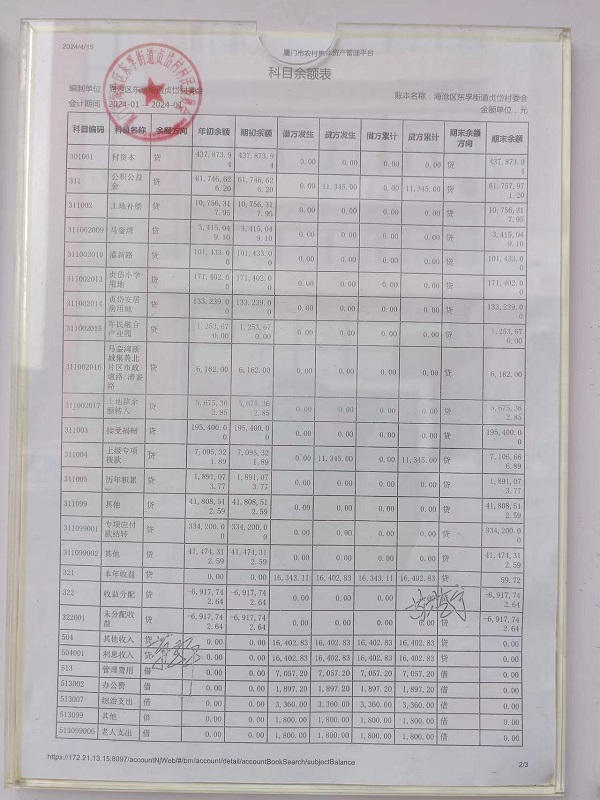 2024/4/15 厦门市农村集体资产管理平台
科目余额表
编制单位：海沧区东孚街道贞岱村委会 账本名称：海沧区东孚街道贞岱村委会
会计期间：2024-01 — 2024-01 金额单位：元
科目编码 科目名称 余额方向 年初余额 期初余额 借方发生 贷方发生 借方累计 贷方累计 期末余额方向 期末余额
301001 村资本 贷 437,873.94 437,873.94 0.00 0.00 0.00 0.00 贷 437,873.94
311 公积公益金 贷 61,746,626.20 61,746,626.20 0.00 11,345.00 0.00 11,345.00 贷 61,757,971.20
311002 土地补偿 贷 10,756,317.95 10,756,317.95 0.00 0.00 0.00 0.00 贷 10,756,317.95
311002009 马銮湾 贷 3,415,049.10 3,415,049.10 0.00 0.00 0.00 0.00 贷 3,415,049.10
311002010 灌新路 贷 101,433.00 101,433.00 0.00 0.00 0.00 0.00 贷 101,433.00
311002013 贞岱小学用地 贷 171,402.00 171,402.00 0.00 0.00 0.00 0.00 贷 171,402.00
311002014 贞岱安居房用地 贷 133,239.00 133,239.00 0.00 0.00 0.00 0.00 贷 133,239.00
311002015 军民融合产业园 贷 1,253,670.00 1,253,670.00 0.00 0.00 0.00 0.00 贷 1,253,670.00
311002016 马銮湾新城集美北片区市政道路/浦新路 贷 6,162.00 6,162.00 0.00 0.00 0.00 0.00 贷 6,162.00
311002017 土地款余额转入 贷 5,675,362.85 5,675,362.85 0.00 0.00 0.00 0.00 贷 5,675,362.85
311003 接受捐赠 贷 195,400.00 195,400.00 0.00 0.00 0.00 0.00 贷 195,400.00
311004 上级专项拨款 贷 7,095,321.89 7,095,321.89 0.00 11,345.00 0.00 11,345.00 贷 7,106,666.89
311005 历年积累 贷 1,891,073.77 1,891,073.77 0.00 0.00 0.00 0.00 贷 1,891,073.77
311099 其他 贷 41,808,512.59 41,808,512.59 0.00 0.00 0.00 0.00 贷 41,808,512.59
311099001 专项应付款结转 贷 334,200.00 334,200.00 0.00 0.00 0.00 0.00 贷 334,200.00
311099002 其他 贷 41,474,312.59 41,474,312.59 0.00 0.00 0.00 0.00 贷 41,474,312.59
321 本年收益 贷 0.00 0.00 16,343.11 16,402.83 16,343.11 16,402.83 贷 59.72
322 收益分配 贷 -6,917,742.64 -6,917,742.64 0.00 0.00 0.00 贷 -6,917,742.64
322001 未分配收益 贷 -6,917,742.64 -6,917,742.64 0.00 0.00 0.00 0.00 贷 -6,917,742.64
504 其他收入 贷 0.00 0.00 16,402.83 16,402.83 16,402.83 16,402.83 贷 0.00
504001 利息收入 贷 0.00 0.00 16,402.83 16,402.83 16,402.83 16,402.83 贷 0.00
513 管理费用 借 0.00 0.00 7,057.20 7,057.20 7,057.20 7,057.20 借 0.00
513002 办公费 借 0.00 0.00 1,897.20 1,897.20 1,897.20 1,897.20 借 0.00
513007 综治支出 借 0.00 0.00 3,360.00 3,360.00 3,360.00 3,360.00 借 0.00
513099 其他 借 0.00 0.00 1,800.00 1,800.00 1,800.00 1,800.00 借 0.00
513099006 老人支出 借 0.00 0.00 1,800.00 1,800.00 1,800.00 1,800.00 借 0.00
https://172.21.13.15:8097/accountNJWeb/#/bm/account/detail/accountBookSearch/subjectBalance 2/3